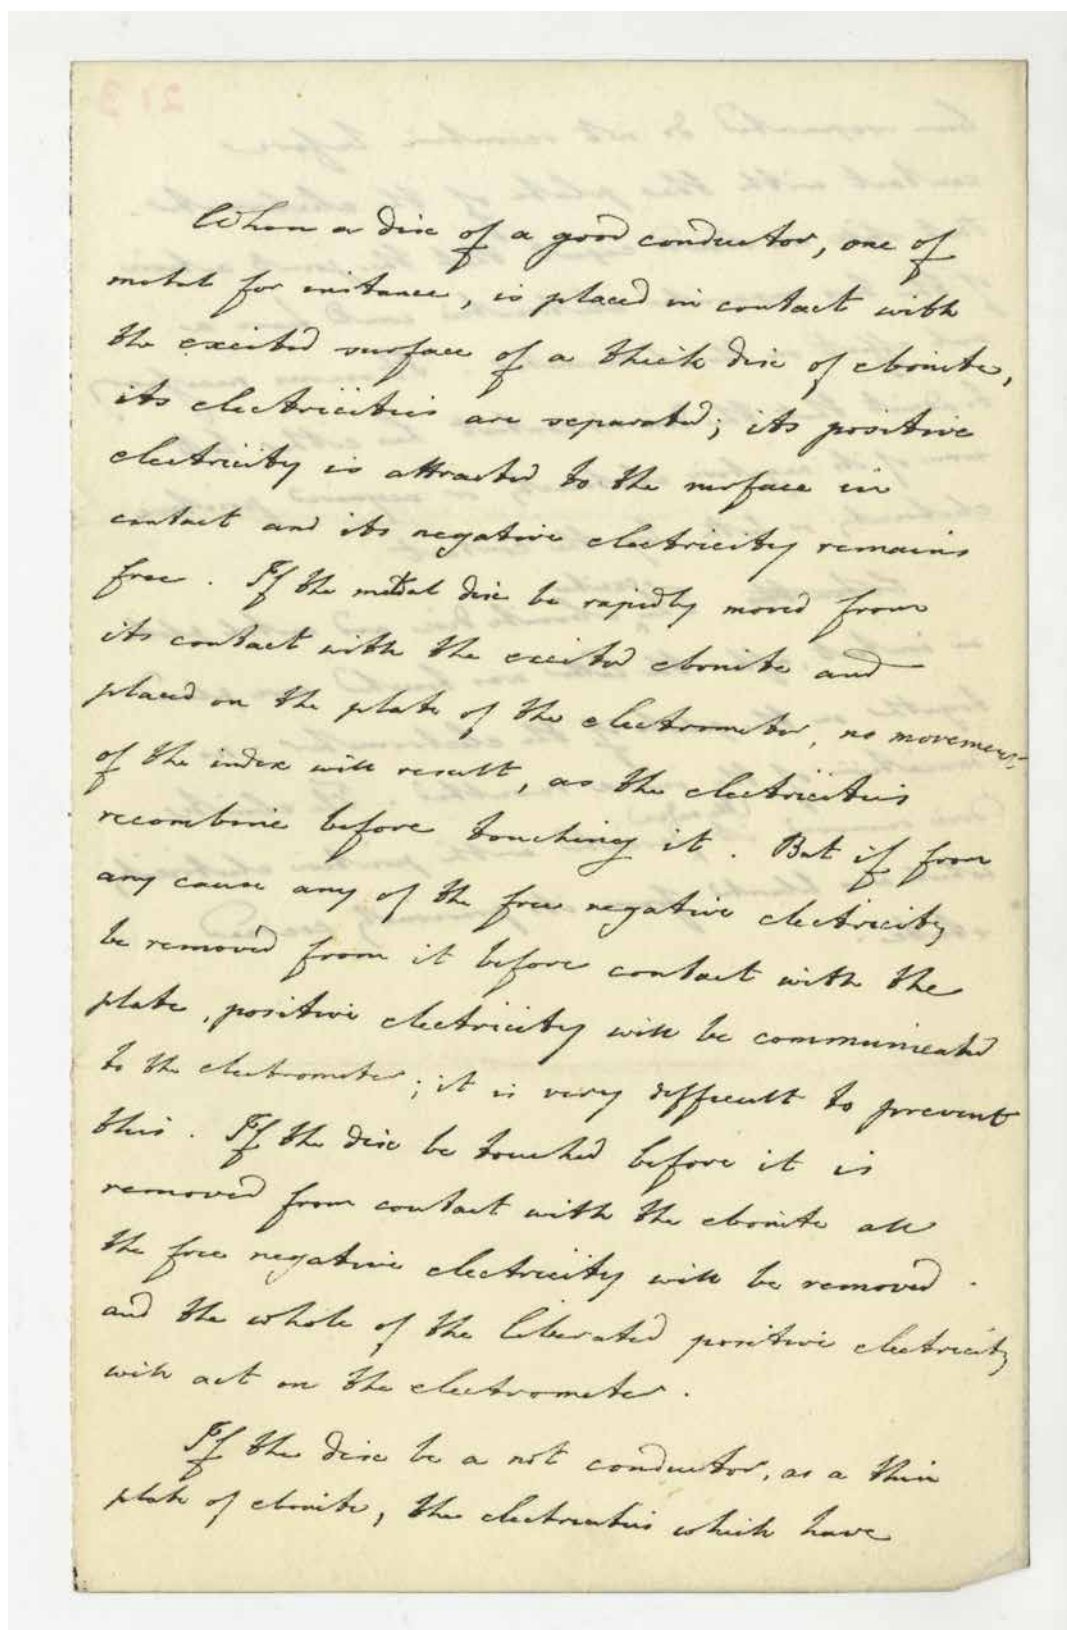 When a disc of a good conductor, one of
metal for instance, is placed in contact with
the excited surface of a thick disc of ebonite,
its electricities are separated; its positive
electricity is attracted to the surface in
contact and its negative electricity remains
free. If the metal disc be rapidly moved from
its contact with the excited ebonite and
placed on the plate of the electrometer, no movement
of the index will result, as the electricities
recombine before touching it. But if from
any cause any of the free negative electricity
be removed from it before contact with the
plate, positive electricity will be communicated
to the electrometer; it is very difficult to prevent
this. If the disc be touched before it is
removed from contact with the ebonite all
the free negative electricity will be removed.
and the whole of the liberated positive electricity
will act on the electrometer.
If the disc be a not conductor, as a thin
plate of ebonite, the electricities which have